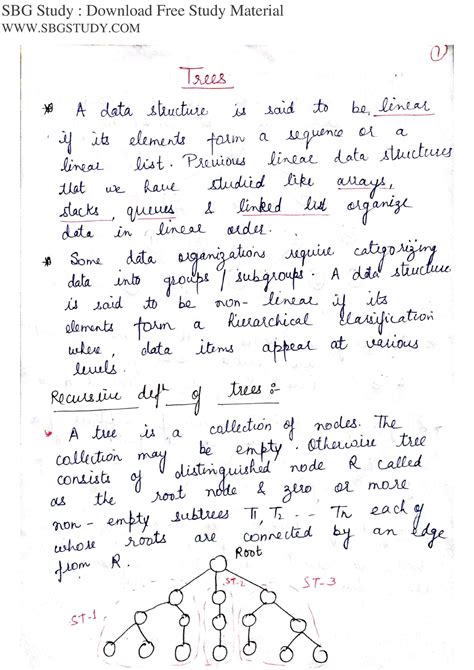 SBG Study : Download Free Study Material
WWW.SBGSTUDY.COM
1
Trees
A data structure is said to be linear
if its elements form a sequence or a
linear list. Previous linear data structures
that we have studied like arrays,
stacks, queues & linked list organize
data in linear order.
Some data organizations require categorizing
data into groups / subgroups. A data structure
is said to be non-linear if its
elements form a hierarchical classification
where, data items appear at various
levels.
Recursive defn of trees :-
A tree is a collection of nodes. The
collection may be empty. Otherwise tree
consists of distinguished node R called
as the root node & zero or more
non-empty subtrees T1, T2 -- Tn each of
whose roots are connected by an edge
from R.
Root
ST-1
ST-2
ST-3